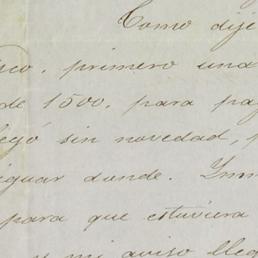 Como dije
sco, primero una
de 1500, para pa
egó sin novedad,
guar donde. Inm
para que estuviera
y mi aviso lleg